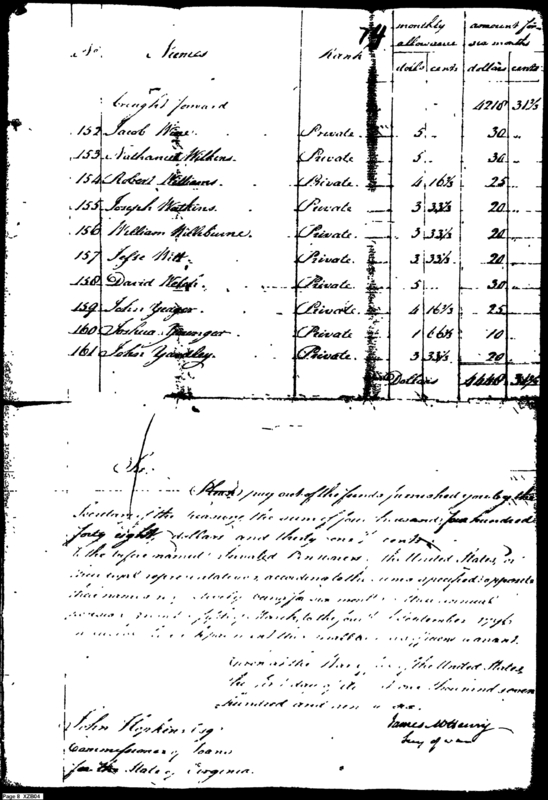 74
monthly allowance
amount for six months
No. Names Rank dolls cents dollars cents
brought forward 4218 31⅓
152 Jacob Wine Private 5 .. 30 ..
153 Nathaniel Wilkins. Private 5 .. 30 ..
154 Robert Williams. Private 4 16⅔ 25 ..
155 Joseph Watkins. Private 3 33⅓ 20 ..
156 William Wilkburne. Private. 3 33⅓ 20 ..
157 Jesse Witt Private. 3 33⅓ 20
158 David Welch. Private. 5 .. 30
159 John Yeager. Private. 4 16⅔ 25 ..
160 Joshua Younger Private. 1 66⅔ 10 ..
161 John Yardley. Private. 3 33⅓ 20 ..
Dollars 4448 31⅓
Sir.
Please pay out of the funds furnished you by the
Secretary of the treasury the sum of four thousand four hundred
forty eight dollars and thirty one cents
to the before named Invalid Pensioners of the United States, or
their legal representatives, according to the sums specified opposite
their names being for six months their annual
pension from the March, to the fourth September 1796
warrant.
Given at the War of the United States,
the first day of one thousand seven
hundred and
James McHenry
Secy of war
John Hopkins Esq
Commissioner of Loans
for the State of Virginia.
Page 8 XZB04